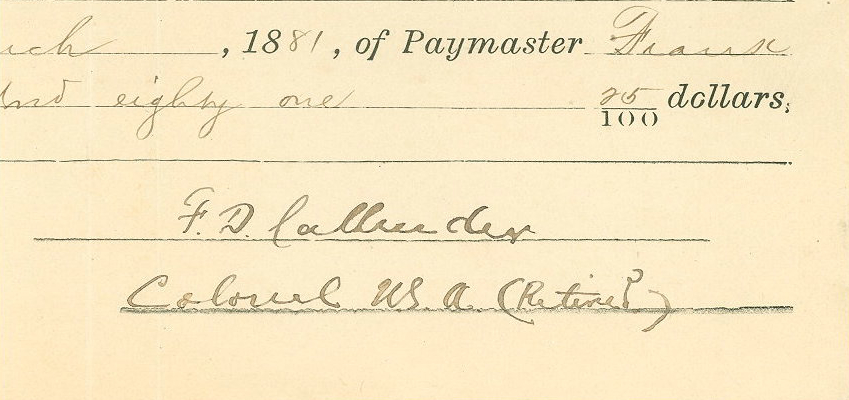 rch, 1881, of Paymaster Frank
and eighty one 25/100 dollars,
F. D. Callender
Colonel U.S.A. (Retired)